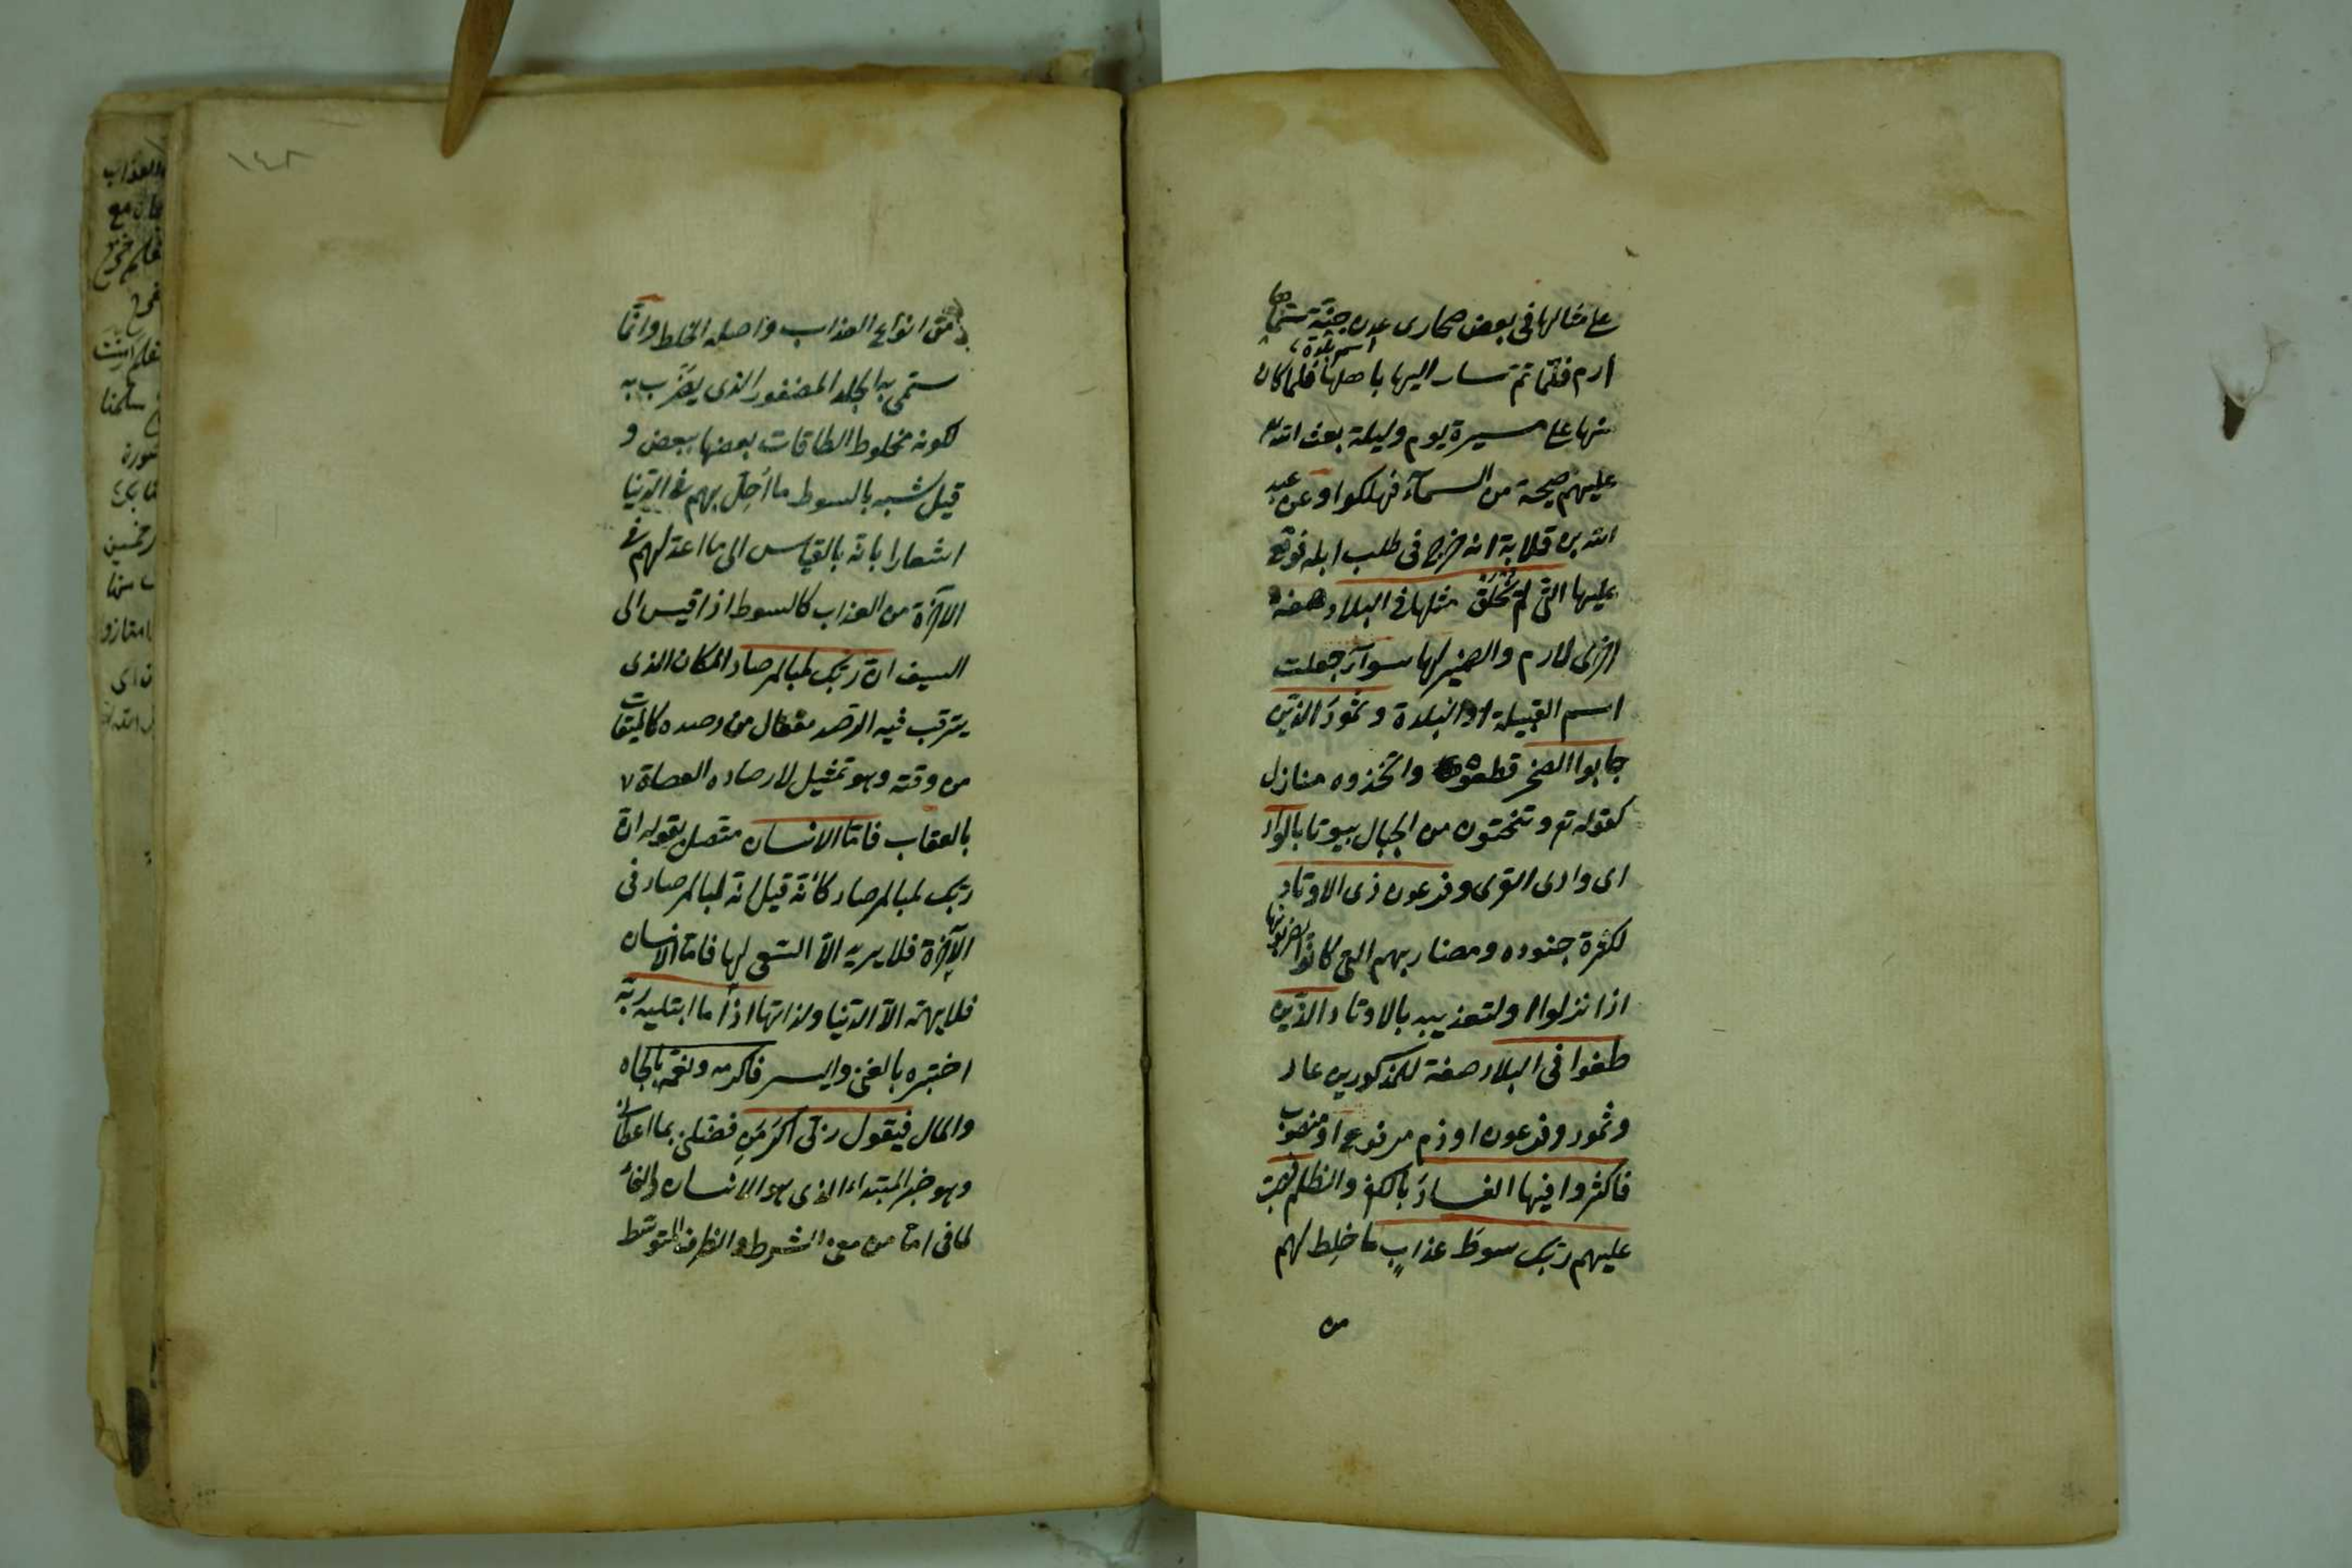 على مثالها في بعض صحارى عدن جنة سمّاها
ارم فلمّا تمّ سار اليها باهلها فلما كان
اسم بلدة
منها على مسيرة يوم وليلة بعث الله
عليهم صيحة من السمآء فهلكوا وعن عبد
الله بن قلابة انه خرج في طلب ابله فوقع
عليها التي لم يخلق مثلها في البلاد صفة
اخرى لارم والضمير لها سوآء جعلت
اسم القبيلة او البلدة وثمودَ الذين
جابوا الصخر قطعوه واتخذوه منازل
كقوله تع وتنحتون من الجبال بيوتا بالواد
اى وادى القرى وفرعون ذى الاوتاد
لكثرة جنوده ومضاربهم التى كانوا يضربونها
اذا نزلوا او لتعذيبه بالاوتاد الذين
طغوا في البلاد صفة للمذكورين عاد
وثمود وفرعون او ذم مرفوع او منصوب
فاكثروا فيها الفسادَ بالكفر والظلم فصبّ
عليهم ربّك سوطَ عذابٍ ما خلِط لهم
من
من انواع العذاب واصله الخلط وانّما
سمّى به الجلد المضفور الذى يضرَب به
لكونه مخلوط الطاقات بعضها ببعض و
قيل شبه بالسوط ما اُحِلّ بهم في الدّنيا
اشعارا بانه بالقياس الى ما اعدّ لهم في
الآخرة من العذاب كالسوط اذا قيس الى
السيف انّ ربّك لبالمرصاد المكان الذى
يترقب فيه الرّصد مفعال من رصده كالميقات
من وقته وهو تمثيل لارصاده العصاة
بالعقاب فامّا الانسان متصل بقوله انّ
ربّك لبالمرصاد كأنّه قيل انّه لبالمرصاد في
الآخرة فلا يريد الاّ السّعى لها فامّا الانسان
فلا يهمّه الاّ الدّنيا ولذاتها اذا ما ابتليه ربّه
اختبره بالغنى واليسر فاكرمه ونعّمه بالجاه
والمال فيقول ربّى اكرَمَنِ فضّلنى بما اعطانى
وهو خبر المبتداء الذى هو الانسان والفاء
لما في امّا من معنى الشرط والظرف المتوسّط
١٤٢